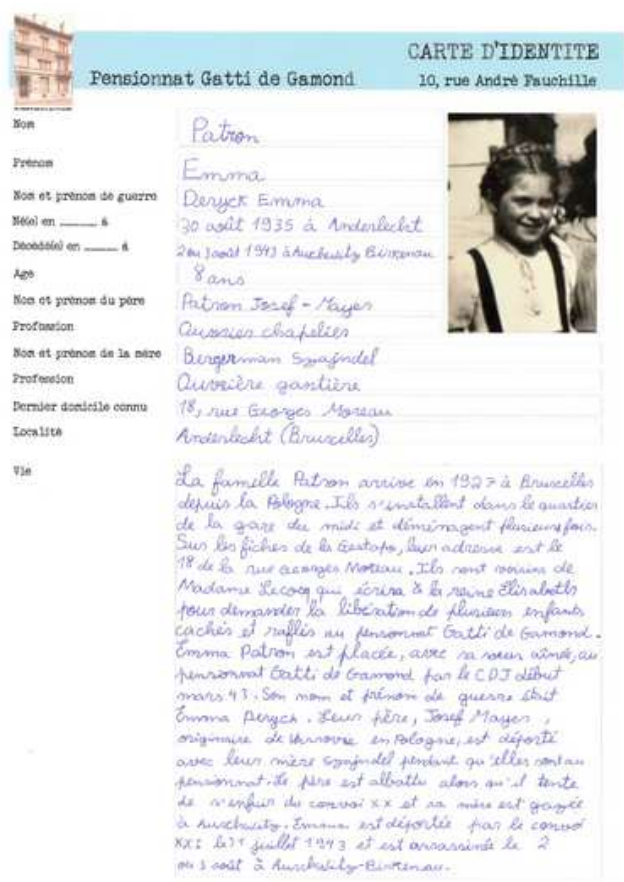 CARTE D'IDENTITE
Pensionnat Gatti de Gamond
10, rue André Fauchille
Nom Patron
Prénom Emma
Nom et prénom de guerre Deryck Emma
Né(e) en ______ à 30 août 1935 à Anderlecht
Décédé(e) en ______ à 2 ou 3 août 1943 à Auchwitz Birkenau
Age 8 ans
Nom et prénom du père Patron Josef - Mayer
Profession chapelier
Nom et prénom de la mère Bergerman Szajndel
Profession Ouvrière gantière
Dernier domicile connu 18, rue Georges Moreau
Localité Anderlecht (Bruxelles)
Vie
La famille Patron arrive en 1927 à Bruxelles
depuis la Pologne. Ils s'installent dans le quartier
de la gare du midi et déménagent plusieurs fois.
Sur les fiches de la Gestapo, leur adresse est le
18 de la rue Georges Moreau. Ils sont voisins de
Madame Lecocq qui écrira à la reine Elisabeth
pour demander la libération de plusieurs enfants
cachés et raflés au pensionnat Gatti de Gamond.
Emma Patron est placée, avec sa soeur aînée, au
pensionnat Gatti de Gamond par le CDJ début
mars 43. Son nom et prénom de guerre était
Emma Deryck. Leur père, Josef Mayer,
originaire de en Pologne, est déporté
avec leur mère Szajndel pendant qu'elles sont au
pensionnat. Le père est abattu alors qu'il tente
de s'enfuir du convoi XX et sa mère est gazée
à Auschwitz. Emma est déportée par le convoi
XXI le 31 juillet 1943 et est assassinée le 2
ou 3 août à Auschwitz-Birkenau.